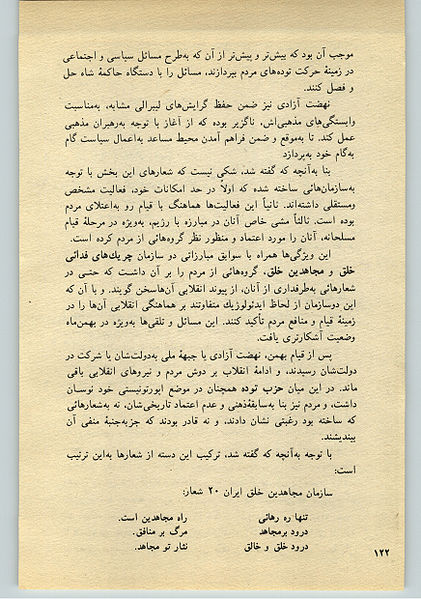 موجب آن بود که بیش‌تر و پیش‌تر از آن که به‌طرح مسائل سیاسی و اجتماعی
در زمینهٔ حرکت توده‌های مردم بپردازند، مسائل را با دستگاه حاکمهٔ شاه حل
و فصل کنند.
نهضت آزادی نیز ضمن حفظ گرایش‌های لیبرالی مشابه، به‌مناسبت
وابستگی‌های مذهبی‌اش، ناگزیر بوده که از آغاز با توجه به‌رهبران مذهبی
عمل کند. تا به‌موقع و ضمن فراهم آمدن محیط مساعد به‌اعمال سیاست گام
به‌گام خود به‌پردازد
بنا به‌آنچه که گفته شد، شکی نیست که شعارهای این بخش با توجه
به‌سازمان‌هائی ساخته شده که اولاً در حد امکانات خود، فعالیت مشخص
ومستقلی داشته‌اند. ثانیاً این فعالیت‌ها هماهنگ با قیام رو به‌اعتلای مردم
بوده است. ثالثاً مشی خاص آنان در مبارزه با رژیم، به‌ویژه در مرحلهٔ قیام
مسلحانه، آنان را مورد اعتماد و منظور نظر گروه‌هائی از مردم کرده است.
این ویژگی‌ها همراه با سوابق مبارزاتی دو سازمان چریك‌های فدائی
خلق و مجاهدین خلق، گروه‌هائی از مردم را بر آن داشـت که حتـی در
شعارهائی به‌طرفداری از آنان، از پیوند انقلابی آن‌هاسخن گویند. و با آن که
این دوسازمان از لحاظ ایدئولوژیك متفاوتند بر هماهنگی انقلابی آن‌ها را در
زمینهٔ قیام و منافع مردم تأکید کنند. این مسائل و تلقی‌ها به‌ویژه در بهمن‌ماه
وضعیت آشکارتری یافت.
پس از قیام بهمن، نهضت آزادی یا جبههٔ ملی به‌دولت‌شان یا شرکت در
دولت‌شان رسیدند، و ادامهٔ انقلاب بر دوش مردم و نیروهای انقلابی باقی
ماند. در این میان حزب توده همچنان در موضع اپورتونیستی خود نوسان
داشت، و مردم نیز بنا به‌سابقهٔ‌ذهنی و عدم اعتماد تاریخی‌شان، نه به‌شعارهائی
که ساخته بود رغبتی نشان دادند، و نه قادر بودند که جزبه‌جنبهٔ منفی آن
بیندیشند.
با توجه به‌آنچه که گفته شد، ترکیب این دسته از شعارها به‌این ترتیب
است:
سازمان مجاهدین خلق ایران ۲۰ شعار:
تنها ره رهائی راه مجاهدین است.
درود برمجاهد مرگ بر منافق.
درود خلق و خالق نثار تو مجاهد.
۱۲۲